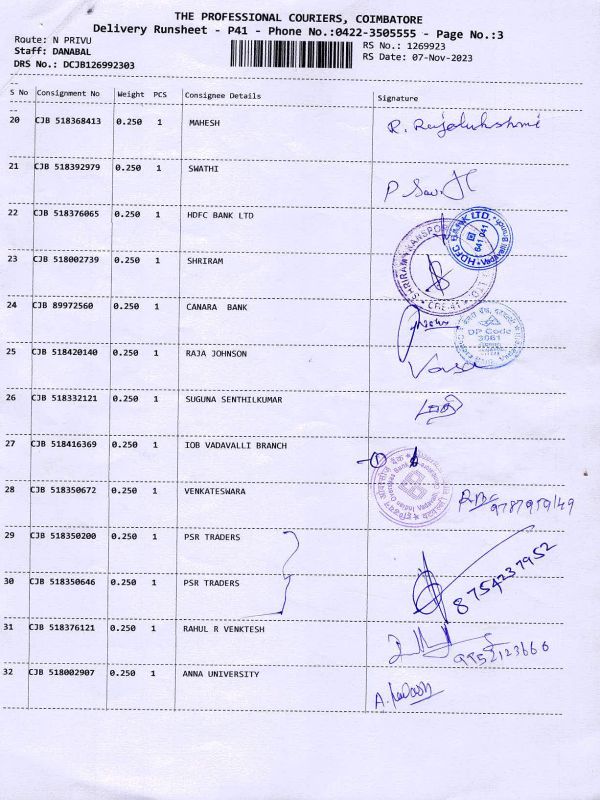 THE PROFESSIONAL COURIERS, COIMBATORE
Delivery Runsheet - P41 - Phone No.:0422-3505555 - Page No.:3
Route: N PRIVU RS No.: 1269923
Staff: DANABAL RS Date: 07-Nov-2023
DRS No.: DCJB126992303
S No Consignment No Weight PCS Consignee Details Signature
20 CJB 518368413 0.250 1 MAHESH R. Rajalukshmi
21 CJB 518392979 0.250 1 SWATHI
22 CJB 518376065 0.250 1 HDFC BANK LTD
HDFC BANK LTD. 641 041
23 CJB 518002739 0.250 1 SHRIRAM
24 CJB 89972560 0.250 1 CANARA BANK
DP Code
3061
25 CJB 518420140 0.250 1 RAJA JOHNSON
26 CJB 518332121 0.250 1 SUGUNA SENTHILKUMAR
27 CJB 518416369 0.250 1 IOB VADAVALLI BRANCH
28 CJB 518350672 0.250 1 VENKATESWARA 9787959149
29 CJB 518350200 0.250 1 PSR TRADERS
30 CJB 518350646 0.250 1 PSR TRADERS 8754237952
31 CJB 518376121 0.250 1 RAHUL R VENKTESH 9952123666
32 CJB 518002907 0.250 1 ANNA UNIVERSITY